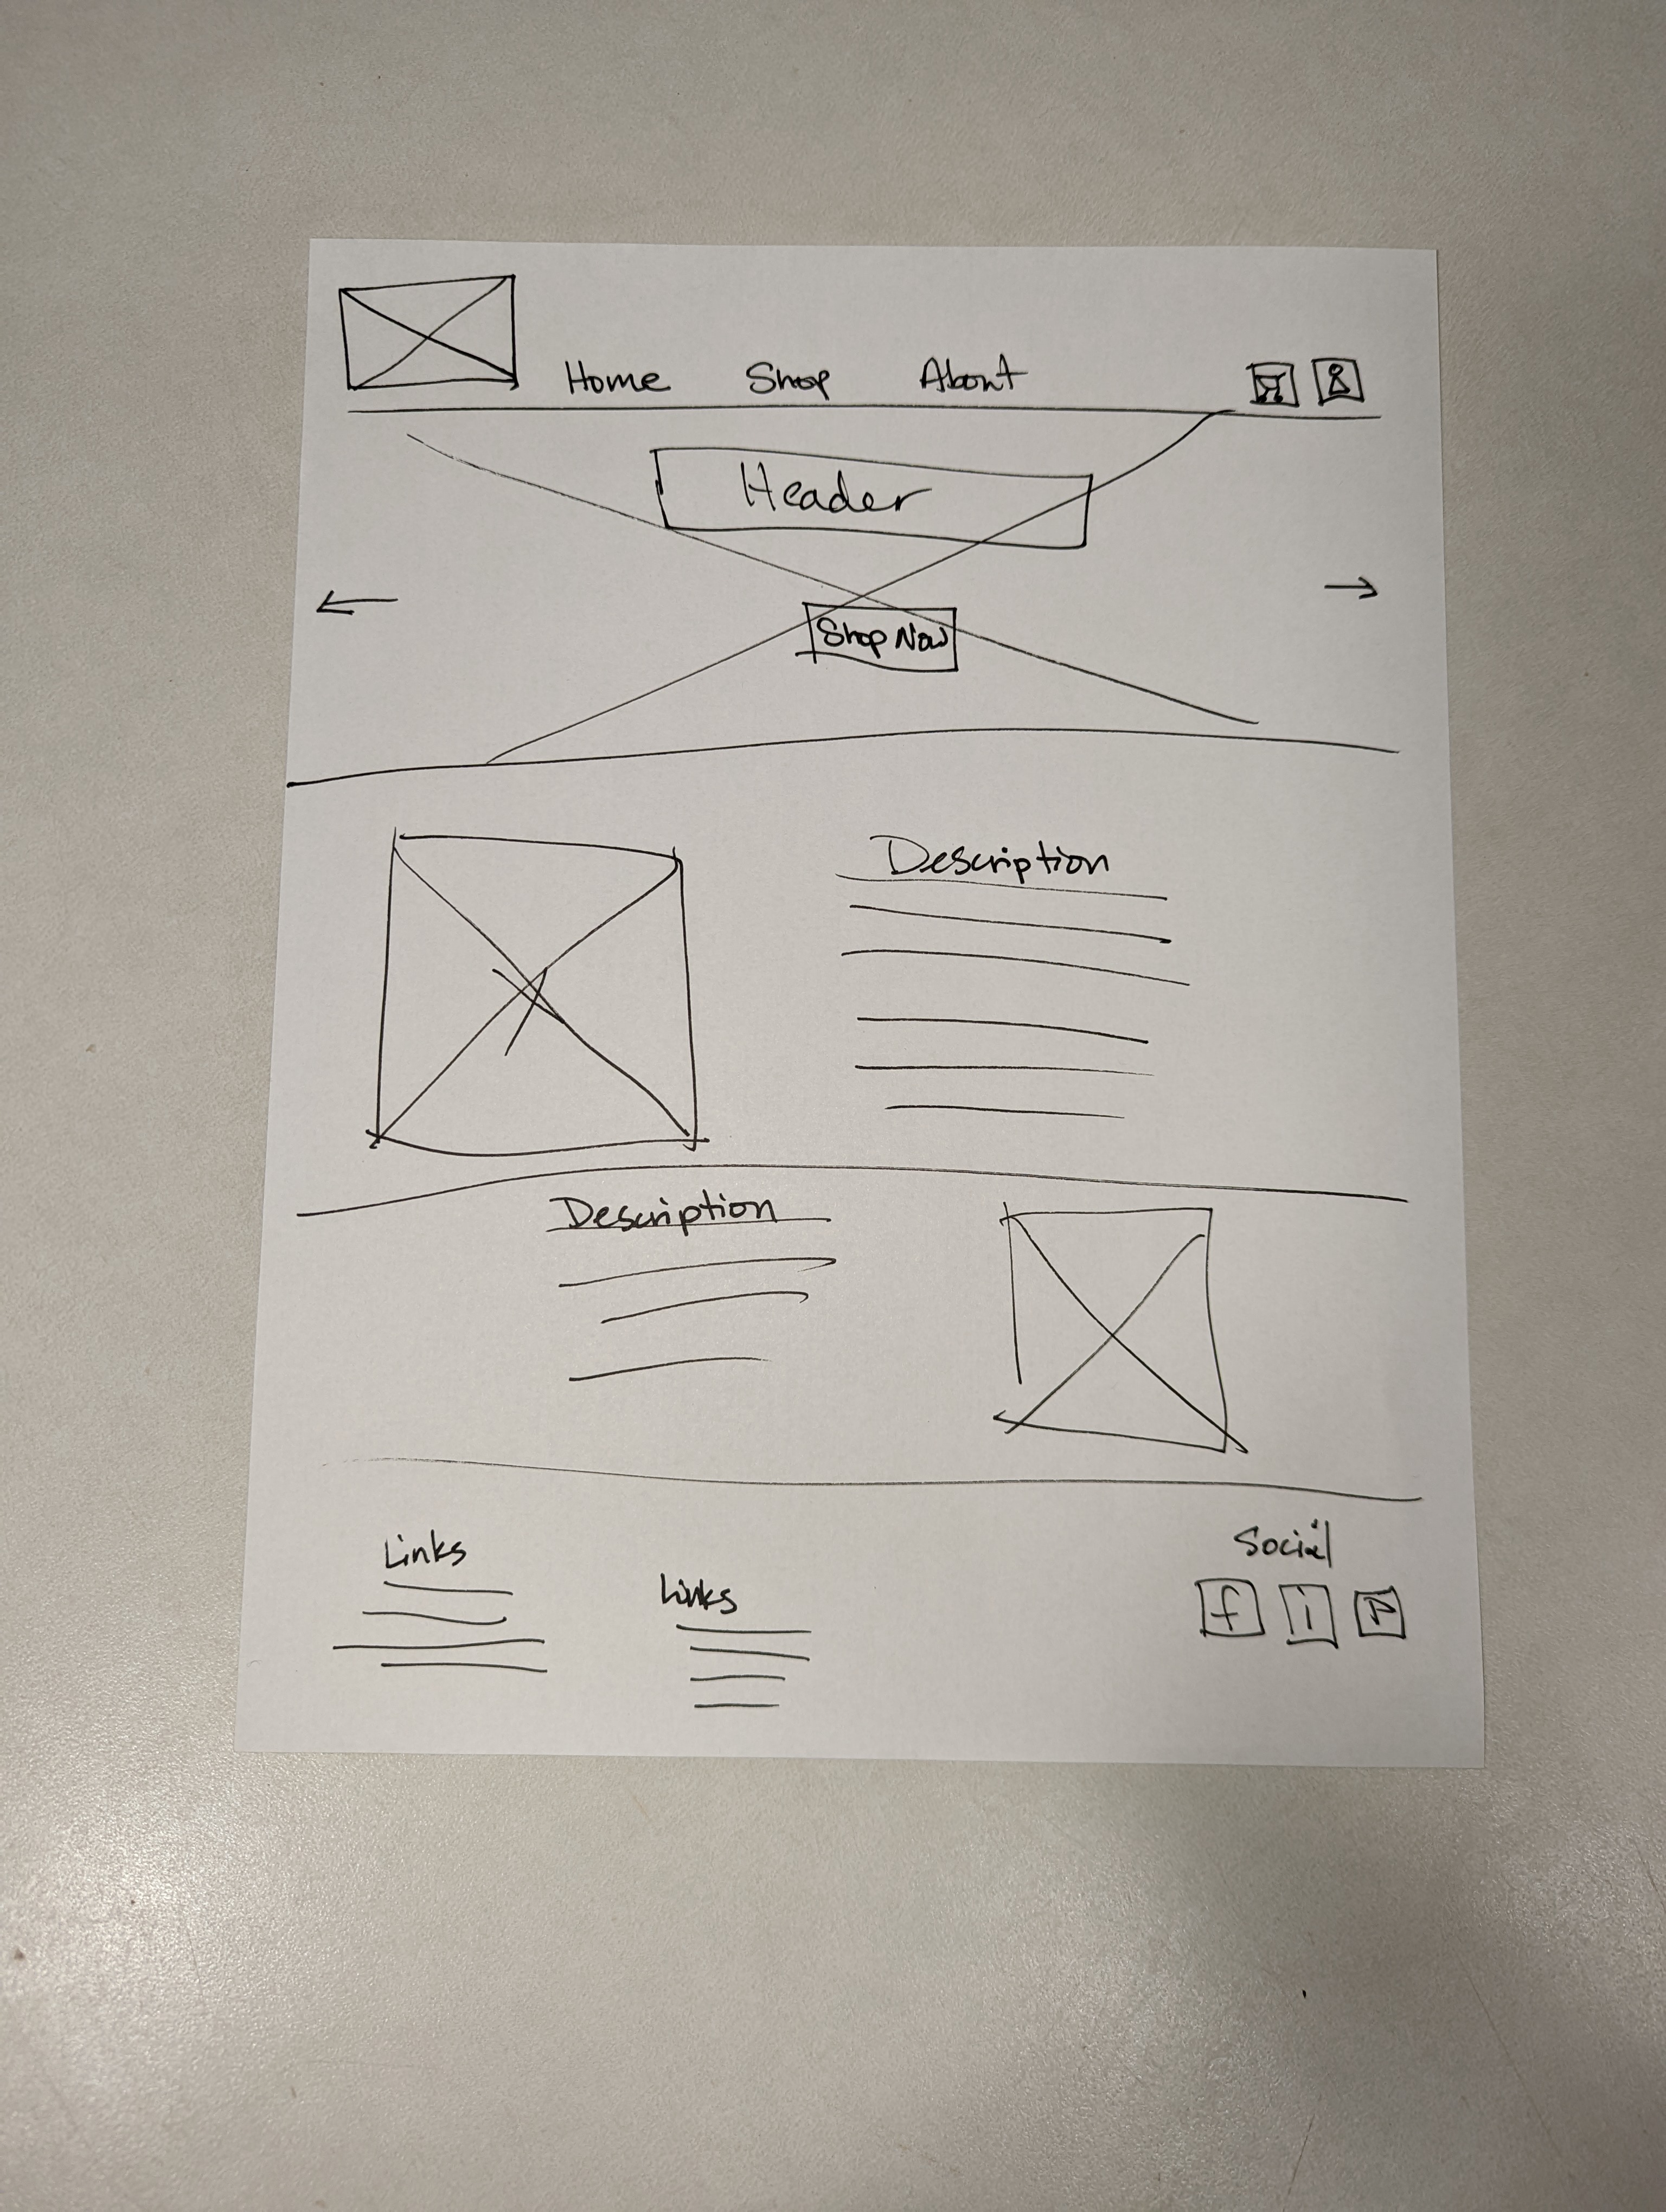 Home Shop About
Header
Shop Now
Description
Description
Links
Links
Social
f i P